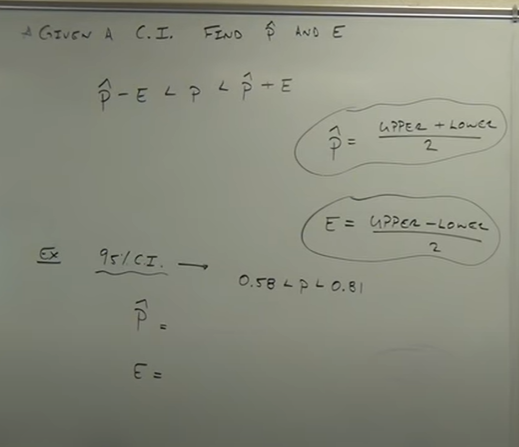 GIVEN A C.I. FIND p̂ AND E
p̂ - E < p < p̂ + E
p̂ = UPPER + LOWER / 2
E = UPPER - LOWER / 2
Ex 95% C.I. → 0.58 < p < 0.81
p̂ =
E =